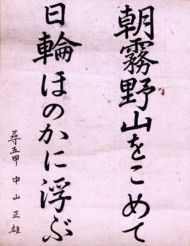 朝霧野山をこめて
日輪ほのかに浮ぶ
尋五甲 中山正雄